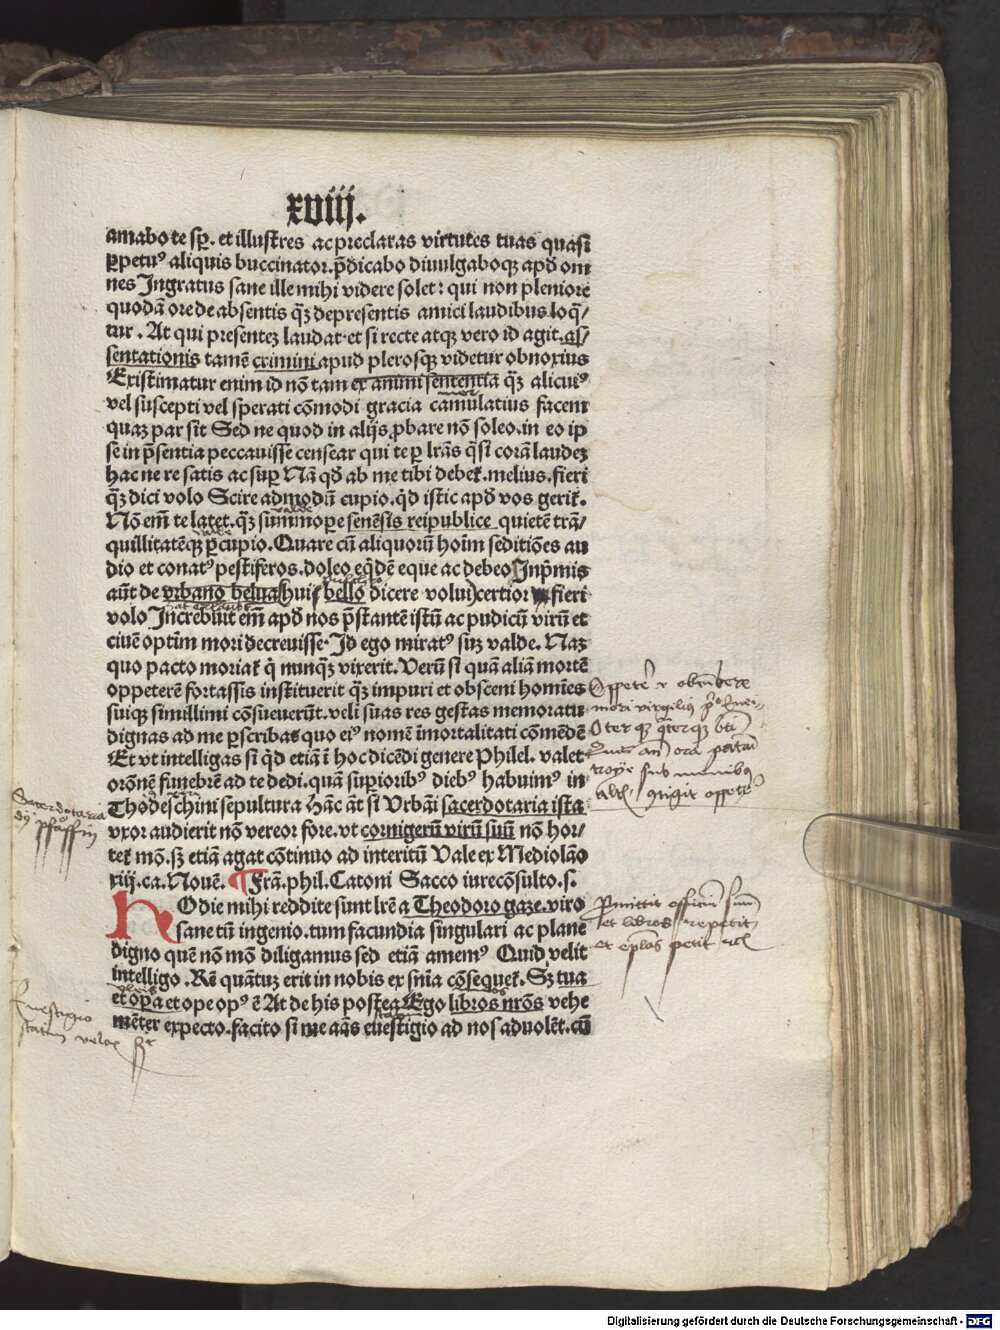 xviij.
amabo te sꝑ. et illustres ac preclaras virtutes tuas quasi
ꝑpetuꝰ aliquis buccinator. p̄dicabo diuulgaboqꝫ apd̄ om
nes Ingratus sane ille mihi videre solet: qui non pleniore
quodā ore de absentis qꝫ̄ de presentis amici laudibus loqͥ/
tur. At qui presentez laudat· et si recte atqꝫ vero id agit. as/
sentationis tamē crimini apud plerosqꝫ videtur obnoxius
Existimatur enim id nō tam ex animi sentencia qꝫ̄ alicuiꝰ
vel suscepti vel sperati cōmodi gracia camulatius facere
quaꝫ par sit Sed ne quod in alijs ꝓbare nō soleo. in eo ip
se in p̄sentia peccauisse censear qui te ꝑ lr̄as qͣsi corā laudeꝫ
hac ne re satis ac suꝑ Nā qd̄ ab me tibi debet̄. melius. fieri
qꝫ̄ dici volo Scire admodū cupio. qd̄ istic apd̄ vos gerit̄.
Nō em̄ te latet. qꝫ̄ summope senēsis reipublice quietē trā/
quillitatēqꝫ p̄cupio. Quare cū aliquorū hoīm seditiōes au
dio et conatꝰ pestiferos. doleo eqͥdē eque ac debeo Inp̄mis
aūt de vrbano belua (hui bello dicere volui) certior fieri
volo Increbuit em̄ apd̄ nos p̄stantē istū ac pudicū virū et
ciuē optim̄ mori decreuisse· Id ego miratꝰ suꝫ valde. Naꝫ
quo pacto moriat̄ qͥ nunqꝫ̄ vixerit. Verū si quā aliā mortē
oppeterē fortassis instituerit qꝫ̄ impuri et obsceni homīes
suiqꝫ simillimi cōsueuerūt. veli suas res gestas memoratu
dignas ad me ꝑscribas quo eiꝰ nomē īmortalitati comēdē
Et vt intelligas si qd̄ etiā ī hoc dicēdi genere Philel. valet
orōnē funebrē ad te dedi. quā suꝑioribꝰ diebꝰ habuimꝰ in
Thodeschini sepultura Hāc āt si Vrbāi sacerdotaria ista
vxor audierit nō vereor fore. vt cornigerū virū suū nō hor/
tet̄ mō. sꝫ etiā agat cōtinuo ad interitū Vale ex Mediolāo
xiij. ca. Nouē. ¶ Frā. phil. Catoni Sacco iurecōsulto. s.
HOdie mihi reddite sunt lr̄e a Theodoro gaze. viro
sane tū ingenio. tum facundia singulari ac plane
digno quē nō mō diligamus sed etiā amemꝰ Quid velit
intelligo. Rē quātuꝫ erit in nobis ex sn̄ia cōsequet̄. Sꝫ tua
et oꝑa et ope opꝰ ē At de his postea Ego libros nr̄os vehe
mēter expecto. facito si me aās euestigio ad nos aduolēt. cū
Oppetere obumbere
mori virgilius
O terqꝫ quaterqꝫ bti
Quis an̄ ora patrū
troye sub menibus
Sacerdotaria
dy pfaffin
Permittit officiū suū
et libros repetit
et ep̄las petit
Euestigio
statim velox
Digitalisierung gefördert durch die Deutsche Forschungsgemeinschaft - DFG